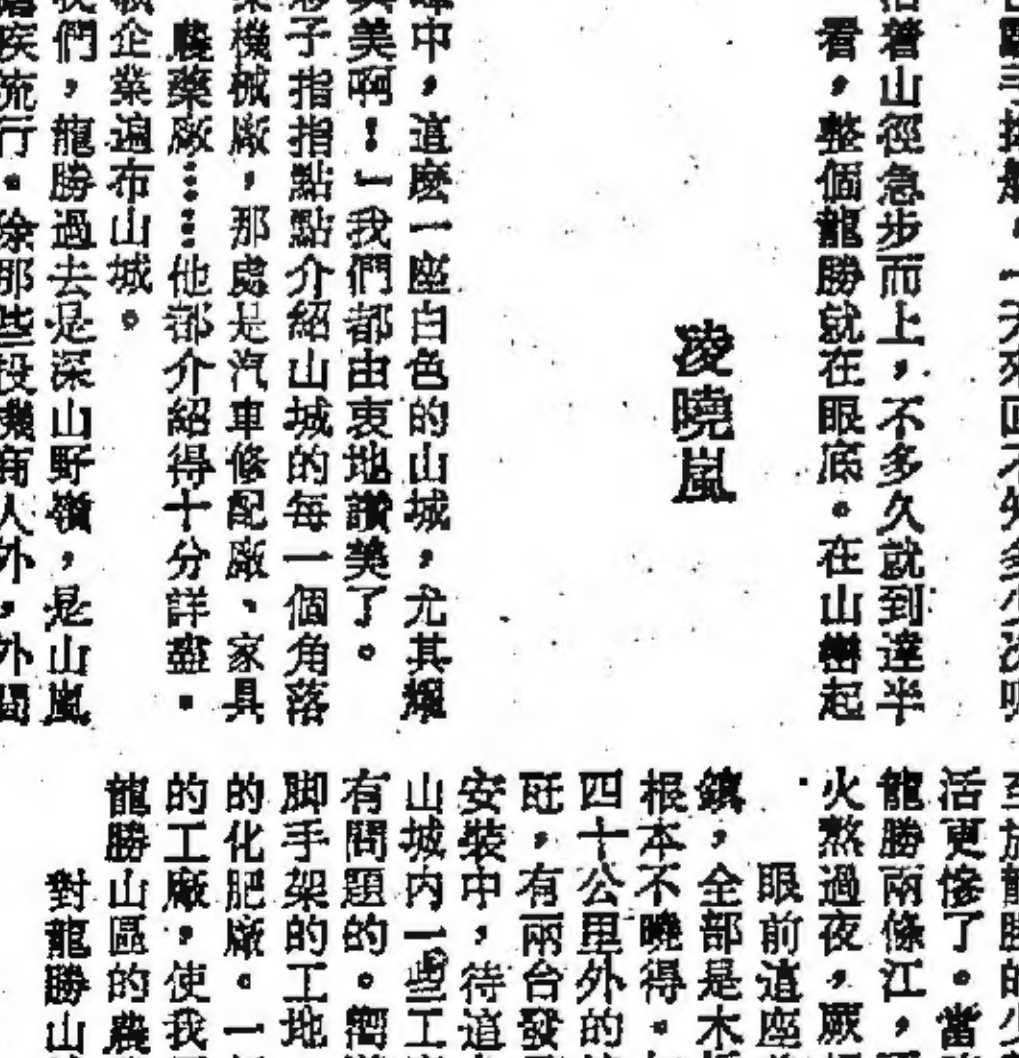 沿着山徑急步而上，不多久就到達半
看，整個龍勝就在眼底。在山巒起
凌曉嵐
中，這麽一座白色的山城，尤其
美啊！」我們都由衷地讚美了。
子指指點點介紹山城的每一個角落
機械廠，那處是汽車修配廠、家具
農藥廠……他都介紹得十分詳盡。
企業遍布山城。
們，龍勝過去是深山野嶺，是山嵐
疾流行。除那些投機商人外，外間
活更慘了。當
龍勝兩條江，
火熬過夜，厥
眼前這座
鎮，全部是木
根本不曉得。
四十公里外的
旺，有兩台發
安裝中，待這
山城內一些工
有問題的。
脚手架的工地
的化肥廠。一
的工廠，使我
龍勝山區的農
對龍勝山